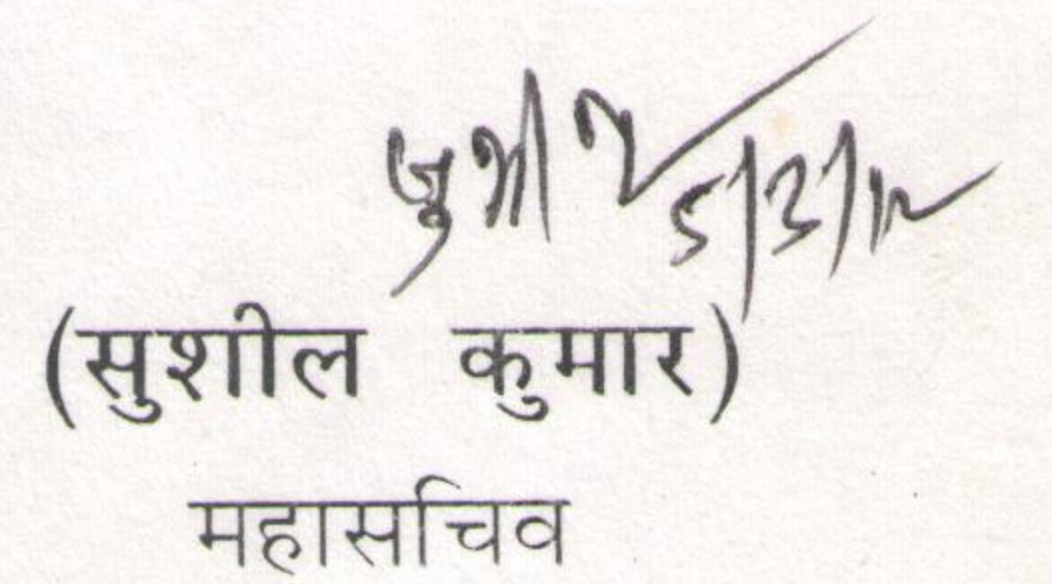 5/3/12
(सुशील कुमार)
महासचिव